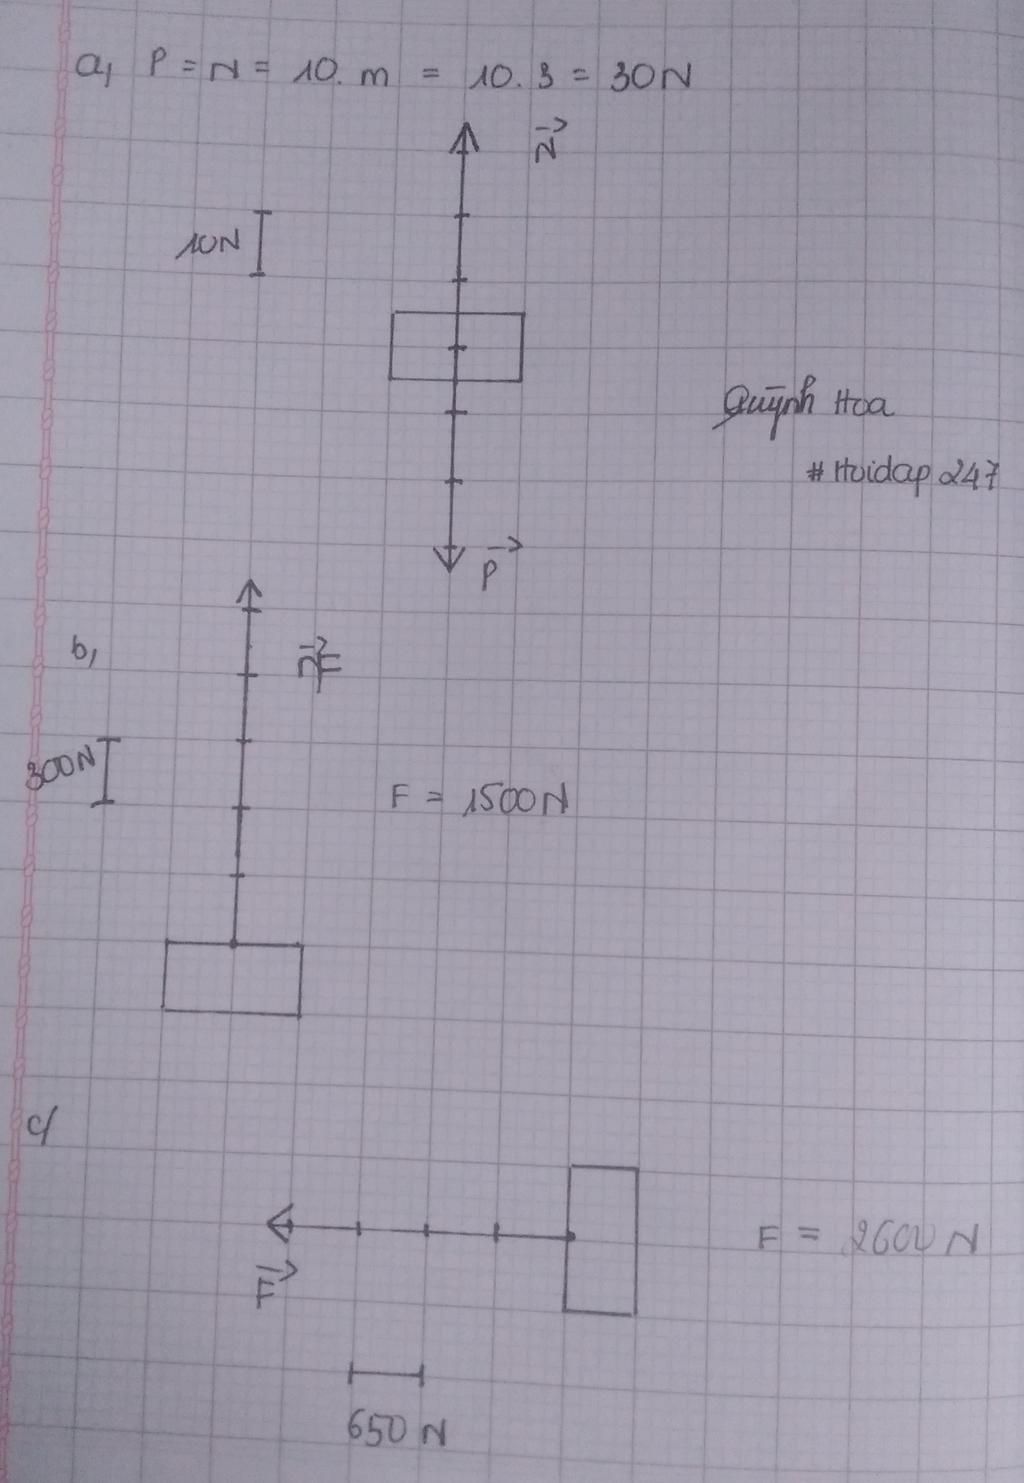 a, P = N = 10. m = 10. 3 = 30N
N
10N
Quỳnh Hoa
#Hoidap 247
P
b,
F
300N
F = 1500N
c/
F = 2600N
F
650 N